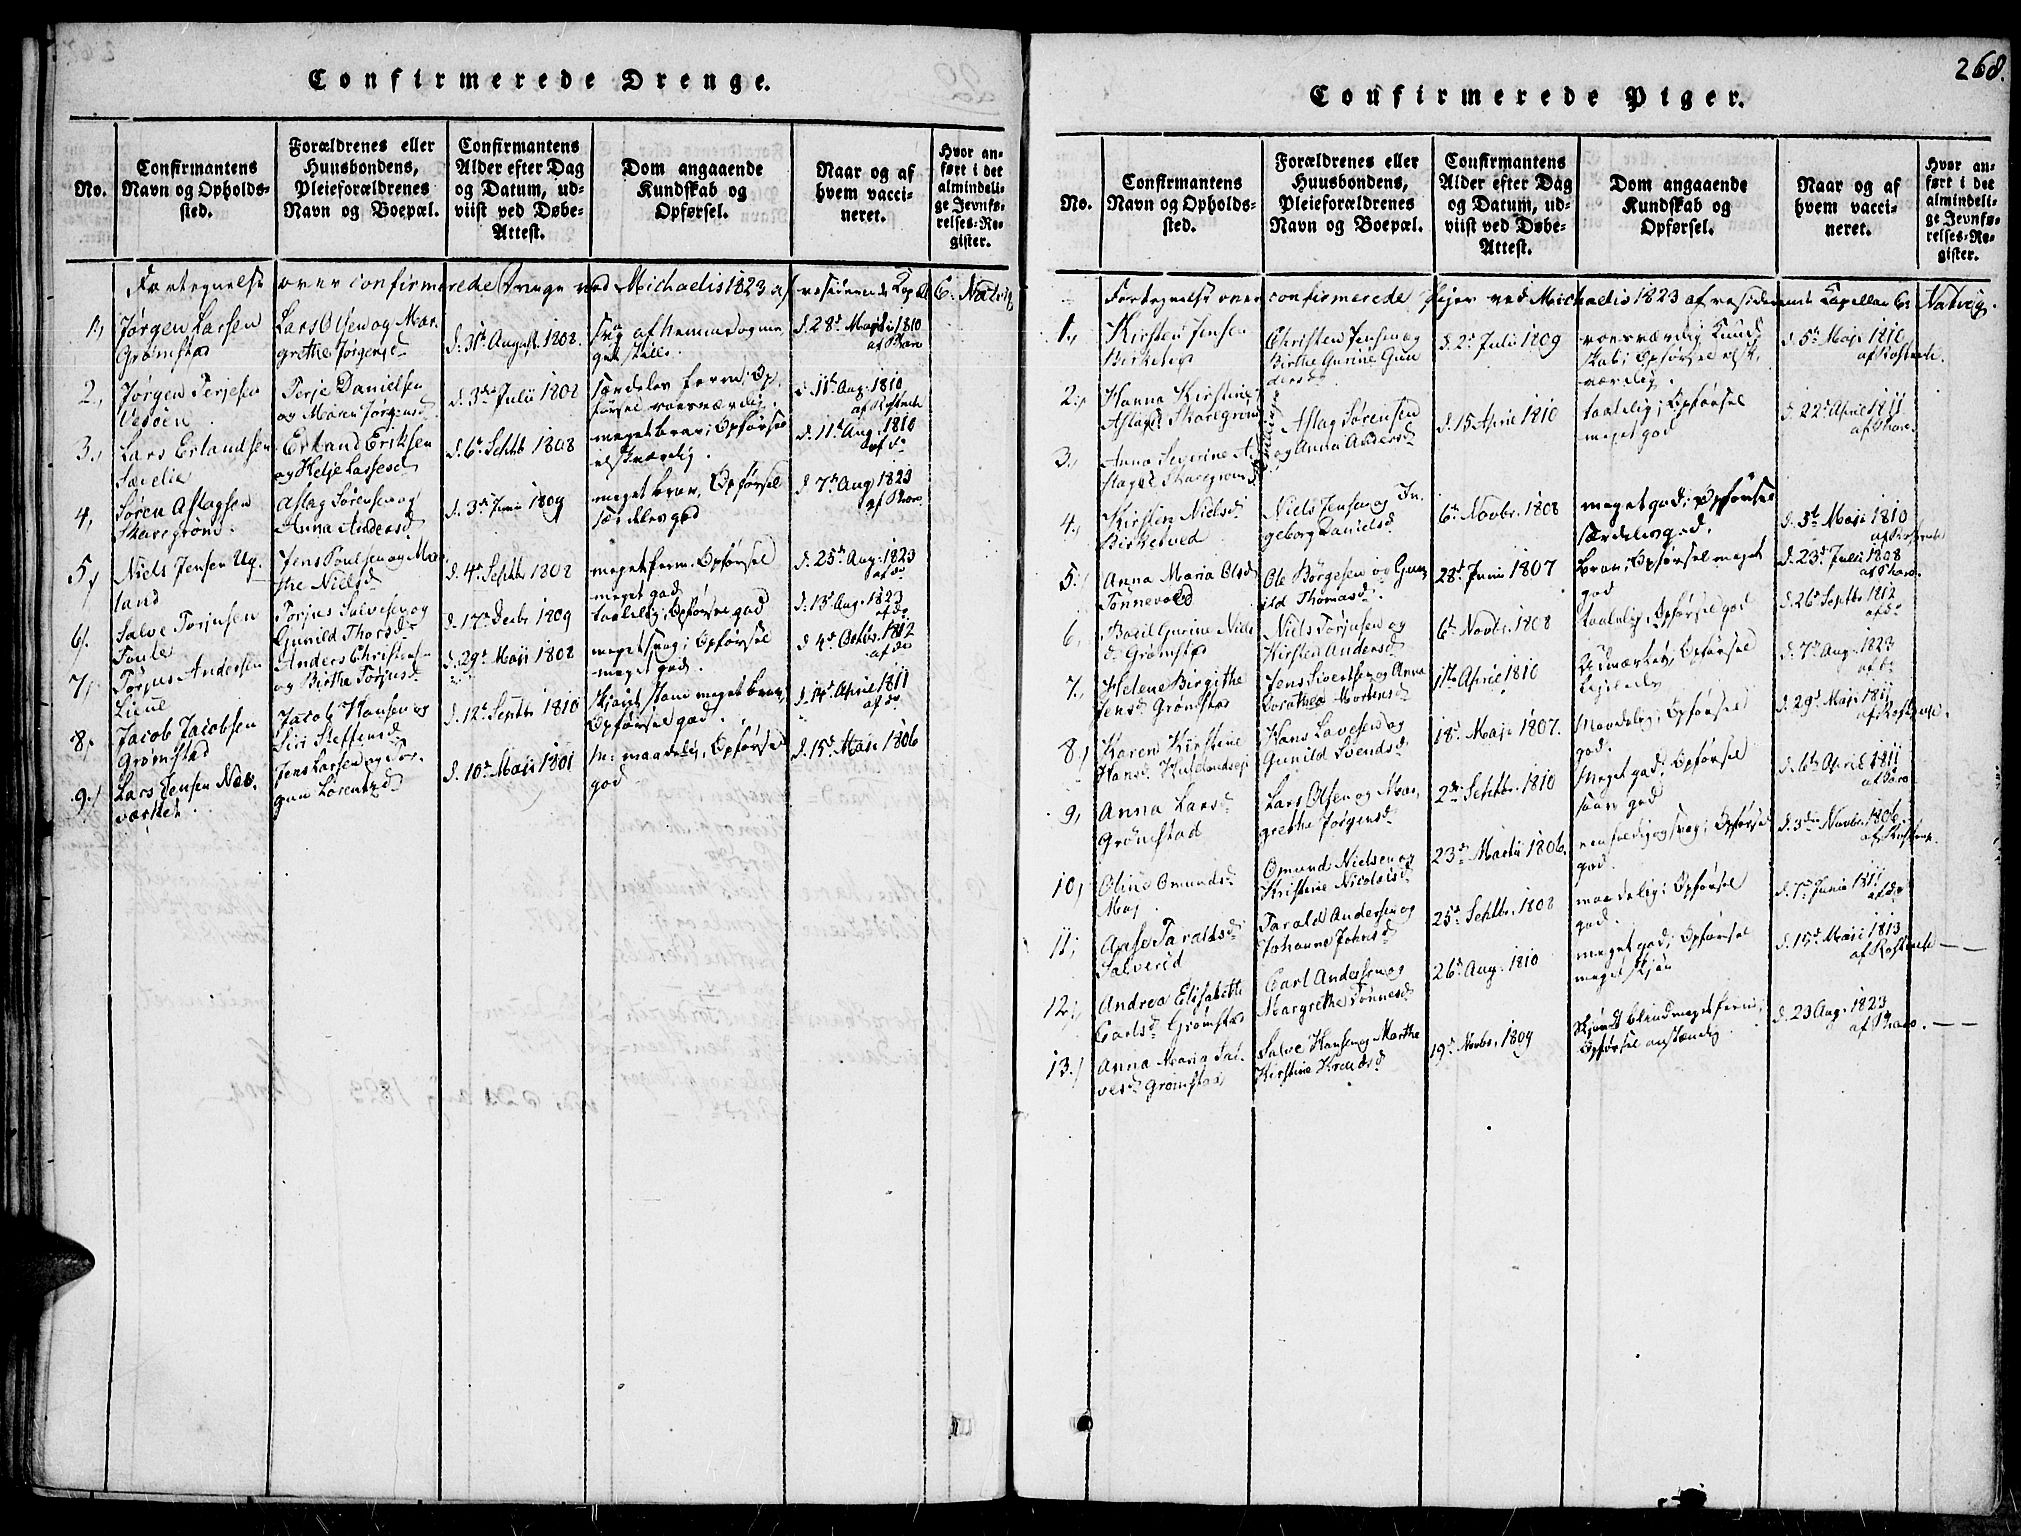 268.
Confirmerede Drenge.
No.
Confirmantens
Navn og Opholds-
sted.
Forældrenes eller
Huusbondens,
Pleieforældrenes
Navn og Boepæl.
Confirmantens
Alder efter Dag
og Datum, ud-
viist ved Døbe-
Attest.
Dom angaaende
Kundskab og
Opførsel.
Naar og af
hvem vacci-
neret.
Hvor an-
ført i det
almindeli-
ge Jevnfø-
relses-Re-
gister.
Fortegnelse over confirmerede Drenge ved Michaelis 1823 af residerende Capel.
1, Jørgen Larsen
Grømstad
Lars Olsen og Mar-
grethe Jørgensd
d. 31t August. 1808.
d. 28d Maji 1810
2., Jørgen Terjesen
Terje Danielsen
og Maren Jørgensd
d. 3die Julii 1808
d. 11t Aug. 1810
3., Lars Erlandsen
Sævelie
Erland Eriksen
d. 6t Septb 1808
meget brav; Opførsel
elskværdig.
d. 11t Aug. 1810
af do
4, Søren Aslagsen
Skaregrønd.
Aslag Sørensen og
Anna Andersd
d. 3d Junii 1809
meget brav, Opførsel
særdeles god
d. 7d Aug 1823
5, Niels Jensen Ug-
land
Jens Poulsen og Mar-
the Nielsd
d. 4d Septbr 1808
Opførsel
meget god
d. 25d Aug. 1823
af do
6. Salve Torjusen
Torjus Salvesen og
Gunild Thorsd
d. 17d Decbr 1809
taalelig; Opførsel god
d. 13d Aug. 1823
af do
7, Torjus Andersen
Anders Christens.
og Birthe Torjusd
d. 29d Maji 1808
meget svag; Opførsel
meget god.
d. 4d Octbr. 1812
af do
8. Jacob Jacobsen
Grømstad
Jacob Hansen og
Siri Steffensd
d. 12t Septbr 1810
Opførsel god.
d. 14d April 1811
af do
9. Lars Jensen Næs-
værket.
Jens Larsen og Jør-
gine Lorentzd
d. 10d Maji 1801
Opførsel
god
d. 15d Maji 1806
Confirmerede Piger.
No.
Confirmantens
Navn og Opholds-
sted.
Forældrenes eller
Huusbondens,
Pleieforældrenes
Navn og Boepæl.
Confirmantens
Alder efter Dag
og Datum, ud-
viist ved Døbe-
Attest.
Dom angaaende
Kundskab og
Opførsel.
Naar og af
hvem vacci-
neret.
Hvor an-
ført i det
almindeli-
ge Jevnfø-
relses-Re-
gister.
Fortegnelse over confirmerede Piger ved Michaelis 1823 af residerende Capellan
1, Kirsten Jensd
Christen Jensen og
Birthe Gurine Gun-
dersd
d. 2d Julii 1809
roesværdig Kund-
skab; Opførsel elsk-
værdig.
d. 5d Maji 1810
2, Hanna Kirstine
Aslagsd Skaregrønd
Aslag Sørensen
og Anna Andersd
d. 15 April 1810
taalelig; Opførsel
meget god
d. 22d April 1811
3, Anna Severine A-
slagsd Skaregrønd
4, Kirsten Nielsd
Birketved
Niels Jensen og In-
geborg Danielsd
6t Novbr. 1808
meget god; Opførsel
særdeles god.
d. 5d Maji 1810
5. Anna Maria Olsd
Tønnevold
Ole Børgesen og Gun-
ild Thomasd.
28d Junii 1807
brav; Opførsel meget
god
d. 23d Julii 1808
6, Bøcil Gurine Niels
d. Grømstad
Niels Torjusen og
Kirsten Andersd
6t Novbr. 1808
taalelig; Opførsel god
d. 26d Septbr 1812
af do
7, Helene Birgithe
Jensd Grømstad
Jens Sivertsen og Anna
Dorothea Mortensd
11t April 1810
Udmærket, Opførsel
d. 7d Aug. 1823
8, Karen Kirstine
Hans Lavesen og
Gunild Svendsd
18d Maji 1807.
Maadelig; Opførsel
god.
d. 29d Maji 1811
9, Anna Larsd
Grømstad
Lars Olsen og Mar-
grethe Jørgensd
2d Septbr. 1810
Meget god; Opførsel
god
d. 6t April 1811
10, Oline Omundsd
Moj
Omund Nielsen og
Kirstine Nicolaisd
23d Martii 1806.
eenfoldig og svag; Opførsel
god.
d. 3die Novbr. 1806
11, Aase Taraldsd
Tarald Andersen og
Johanne Johnsd
25d Septbr. 1808
maadelig; Opførsel
god.
d. 7d Junii 1811
af do
12, Andrea Elisabeth
Carlsd Grømstad
Carl Andersen og
Margrethe Tønnesd
26d Aug. 1810
meget god; Opførsel
meget skjøn
d. 15d Maji 1813
13. Anna Maria Sal-
vesd Grømstad
Salve Hansen og Marthe
Kirstine Knudsd
19d Novbr. 1809
skjøndt blind meget ferm;
Opførsel anstændig.
d. 23 Aug. 1823